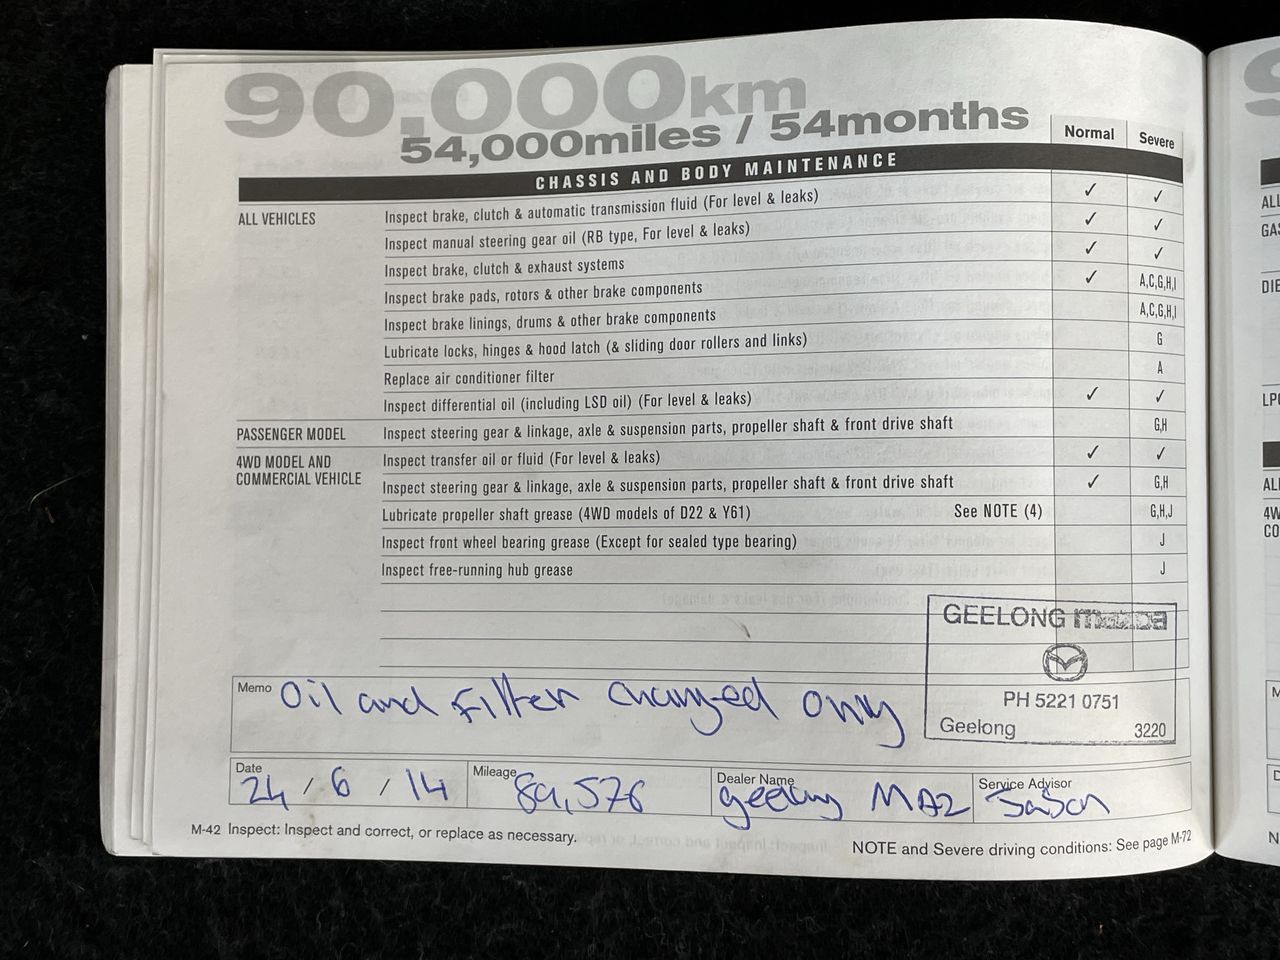 90,000km
54,000miles / 54months
Normal Severe
CHASSIS AND BODY MAINTENANCE
ALL VEHICLES Inspect brake, clutch & automatic transmission fluid (For level & leaks) ✓ ✓
Inspect manual steering gear oil (RB type, For level & leaks) ✓ ✓
Inspect brake, clutch & exhaust systems ✓ ✓
Inspect brake pads, rotors & other brake components ✓ A,C,G,H,I
Inspect brake linings, drums & other brake components A,C,G,H,I
Lubricate locks, hinges & hood latch (& sliding door rollers and links) G
Replace air conditioner filter A
Inspect differential oil (including LSD oil) (For level & leaks) ✓ ✓
PASSENGER MODEL Inspect steering gear & linkage, axle & suspension parts, propeller shaft & front drive shaft G,H
4WD MODEL AND Inspect transfer oil or fluid (For level & leaks) ✓ ✓
COMMERCIAL VEHICLE Inspect steering gear & linkage, axle & suspension parts, propeller shaft & front drive shaft ✓ G,H
Lubricate propeller shaft grease (4WD models of D22 & Y61) See NOTE (4) G,H,J
Inspect front wheel bearing grease (Except for sealed type bearing) J
Inspect free-running hub grease J
GEELONG mazda
PH 5221 0751
Geelong 3220
Memo Oil and Filter changed only
Date 24 / 6 / 14 Mileage 89,576 Dealer Name geelong MAZ Service Advisor Jason
M-42 Inspect: Inspect and correct, or replace as necessary.
NOTE and Severe driving conditions: See page M-72